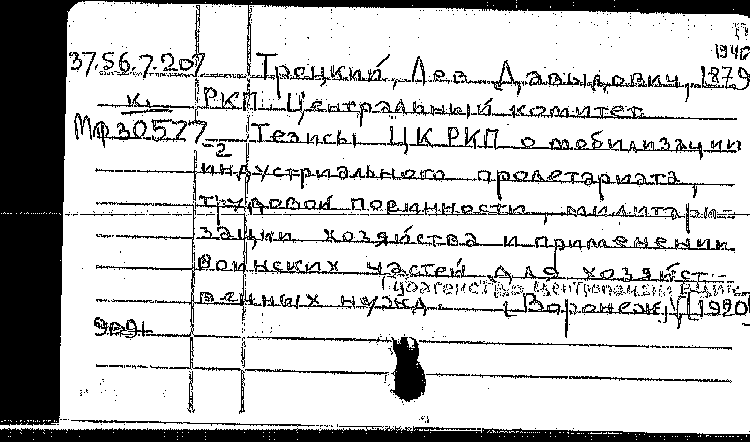 1940
37.56.7.207 Троцкий, Лев Давыдович, 1879
К. РКП Центральный комитет
МФ 30577 Тезисы ЦК РКП о мобилизации
-2
индустриального пролетариата,
трудовой повинности, милитари-
зации хозяйства и применении
воинских частей для хозяйст-
Губагентство Центропечати ВЦИК
венных нужд. Воронеж, [1920